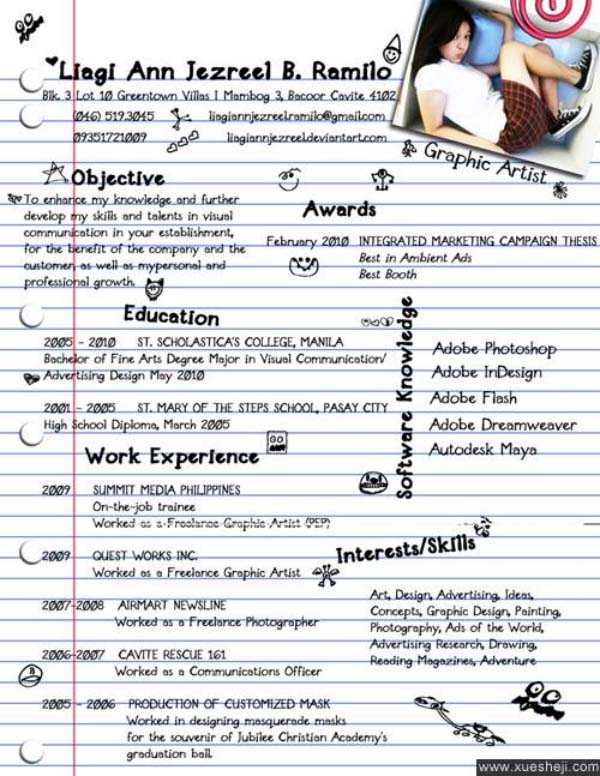 Liagi Ann Jezreel B. Ramilo
Blk. 3 Lot 10 Greentown Villas I Mambog 3, Bacoor Cavite 4102
(046) 519.3045 liagiannjezreelramilo@gmail.com
09351721009 liagiannjezreel.deviantart.com
Graphic Artist
Objective
To enhance my knowledge and further
develop my skills and talents in visual
communication in your establishment,
for the benefit of the company and the
customer, as well as mypersonal and
professional growth.
Awards
February 2010 INTEGRATED MARKETING CAMPAIGN THESIS
Best in Ambient Ads
Best Booth
Education
2005 - 2010 ST. SCHOLASTICA'S COLLEGE, MANILA
Bachelor of Fine Arts Degree Major in Visual Communication/
Advertising Design May 2010
2001 - 2005 ST. MARY OF THE STEPS SCHOOL, PASAY CITY
High School Diploma, March 2005
Software Knowledge
Adobe Photoshop
Adobe InDesign
Adobe Flash
Adobe Dreamweaver
Autodesk Maya
Work Experience
2009 SUMMIT MEDIA PHILIPPINES
On-the-job trainee
Worked as a Freelance Graphic Artist (PEP)
2009 QUEST WORKS INC.
Worked as a Freelance Graphic Artist
2007-2008 AIRMART NEWSLINE
Worked as a Freelance Photographer
2006-2007 CAVITE RESCUE 161
Worked as a Communications Officer
2005 - 2006 PRODUCTION OF CUSTOMIZED MASK
Worked in designing masquerade masks
for the souvenir of Jubilee Christian Academy's
graduation ball.
Interests/Skills
Art, Design, Advertising, Ideas,
Concepts, Graphic Design, Painting,
Photography, Ads of the World,
Advertising Research, Drawing,
Reading Magazines, Adventure
www.xuesheji.com